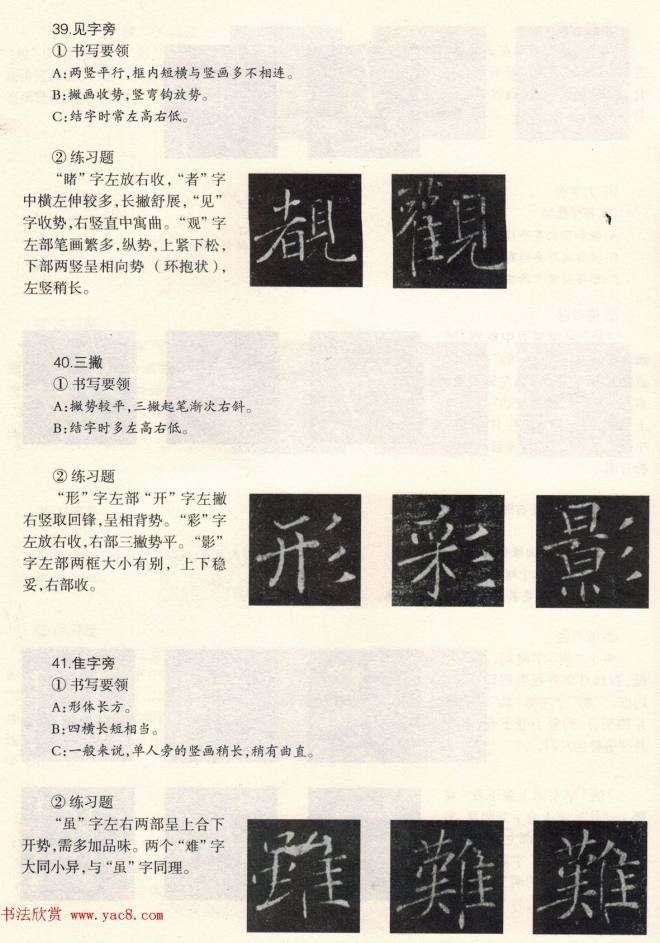 39.见字旁
① 书写要领
A:两竖平行,框内短横与竖画多不相连。
B:撇画收势,竖弯钩放势。
C:结字时常左高右低。
② 练习题
“睹”字左放右收,“者”字
中横左伸较多,长撇舒展,“见”
字收势,右竖直中寓曲。“观”字
左部笔画繁多,纵势,上紧下松,
下部两竖呈相向势（环抱状）,
左竖稍长。
覩 觀
40.三撇
① 书写要领
A:撇势较平,三撇起笔渐次右斜。
B:结字时多左高右低。
② 练习题
“形”字左部“开”字左撇
右竖取回锋,呈相背势。“彩”字
左放右收,右部三撇势平。“影”
字左部两框大小有别，上下稳
妥,右部收。
形 彩 影
41.隹字旁
① 书写要领
A:形体长方。
B:四横长短相当。
C:一般来说,单人旁的竖画稍长,稍有曲直。
② 练习题
“虽”字左右两部呈上合下
开势,需多加品味。两个“难”字
大同小异,与“虽”字同理。
雖 難 難
书法欣赏 www.yac8.com